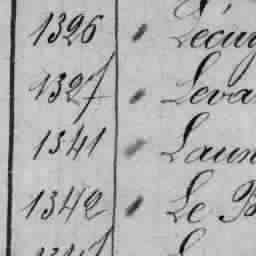 1326 Lécuy
1327 Leva
1341 Laun
1342 Le B